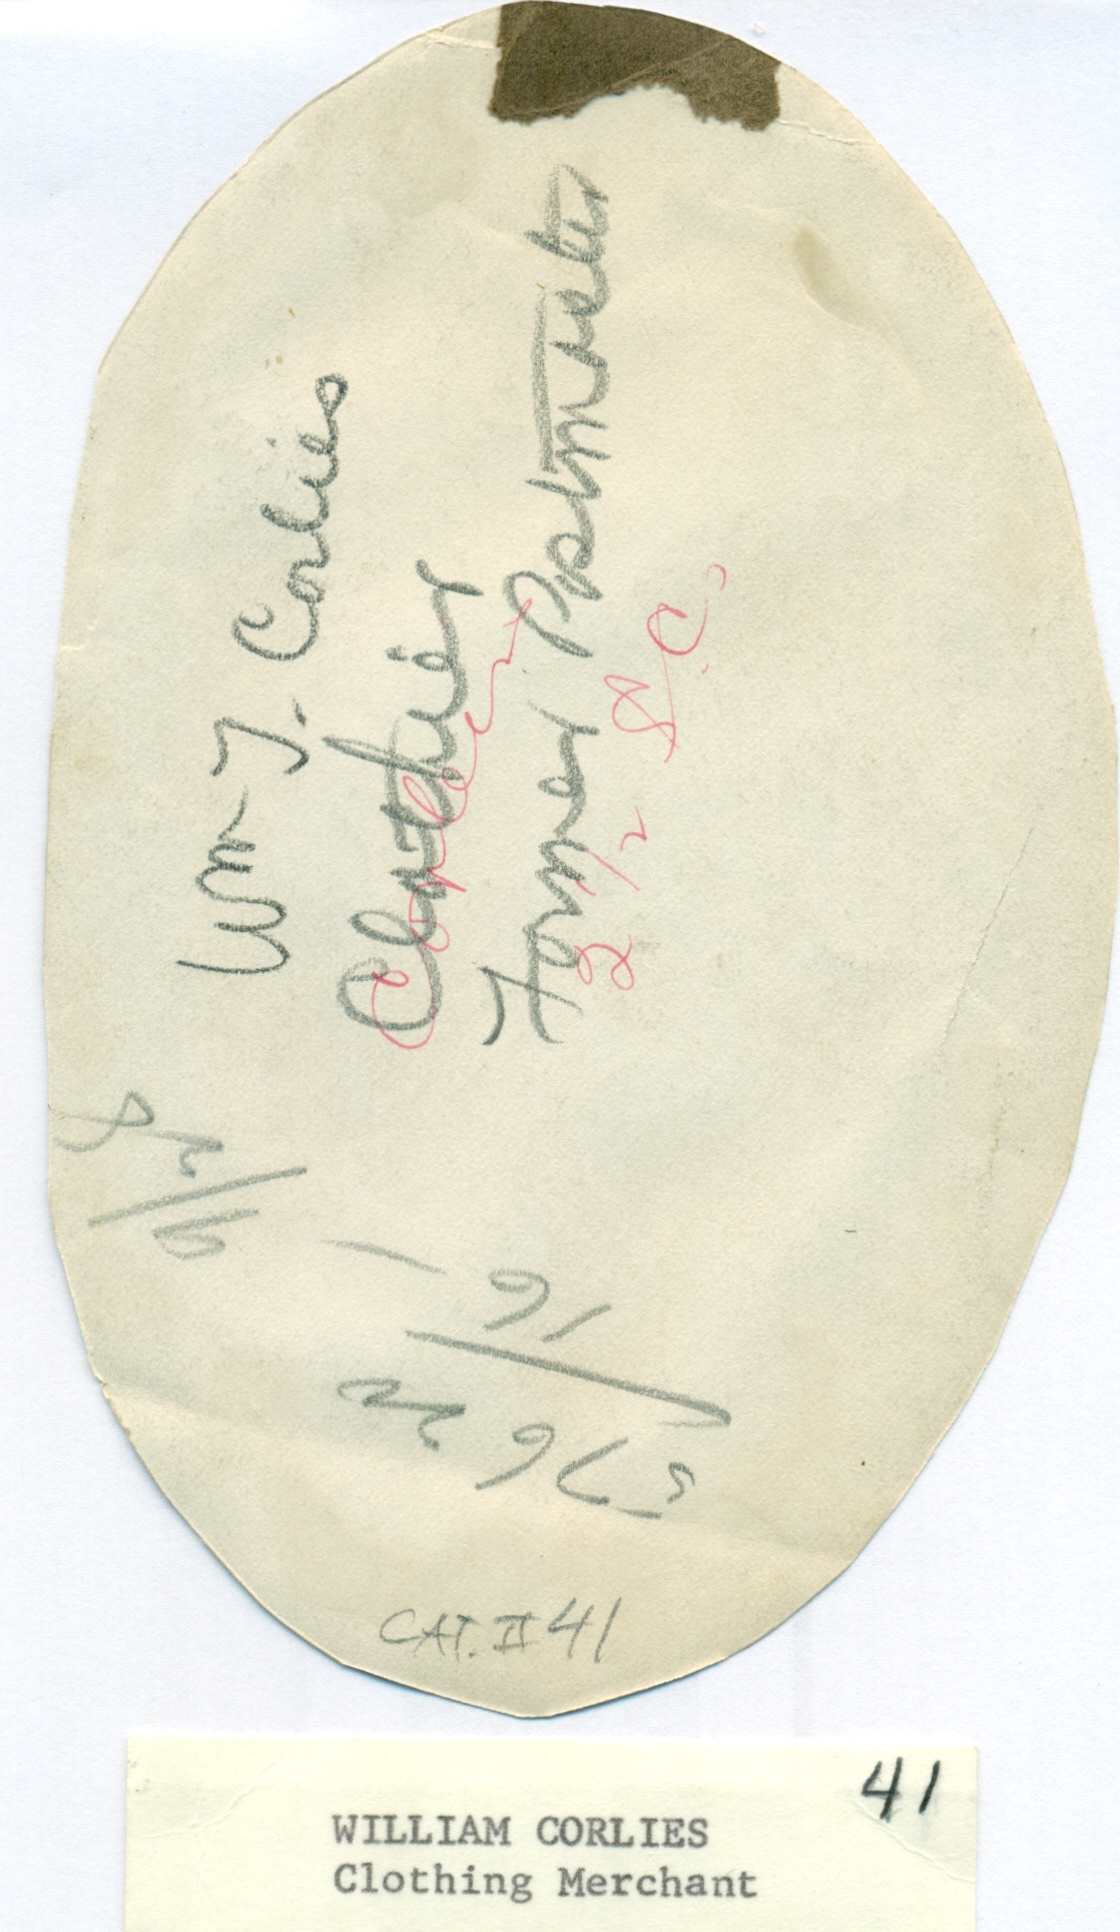 Wm J. Corlies
Clothier
Former Postmaster
2 1/2 S.C.
CAT. II 41
41
WILLIAM CORLIES
Clothing Merchant